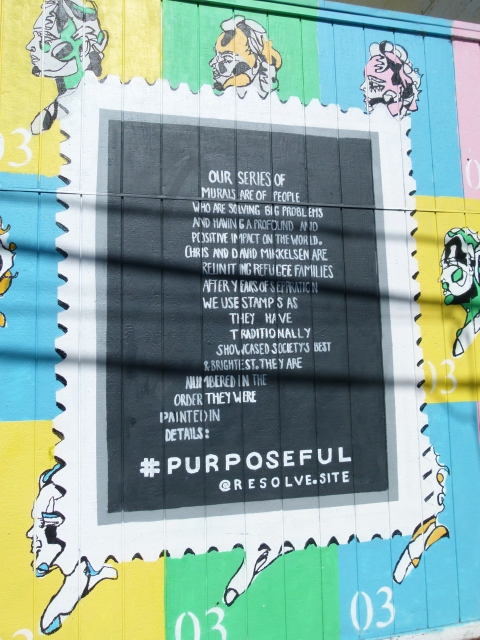 03
OUR SERIES OF
MURALS ARE OF PEOPLE
WHO ARE SOLVING BIG PROBLEMS
AND HAVING A PROFOUND AND
POSITIVE IMPACT ON THE WORLD.
CHRIS AND DAVID MIKKELSEN ARE
REUNITING REFUGEE FAMILIES
AFTER YEARS OF SEPARATION
WE USE STAMPS AS
THEY HAVE
TRADITIONALLY
SHOWCASED SOCIETY'S BEST
& BRIGHTEST. THEY ARE
NUMBERED IN THE
ORDER THEY WERE
PAINTED IN
DETAILS:
#PURPOSEFUL
@RESOLVE.SITE
03
03
03